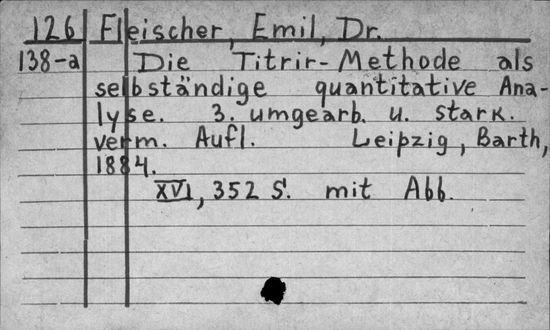 126 Fleischer, Emil, Dr.
138-a Die Titrir-Methode als
selbständige quantitative Ana-
lyse. 3. umgearb. u. stark.
verm. Aufl. Leipzig, Barth,
1884.
XVI, 352 S. mit Abb.